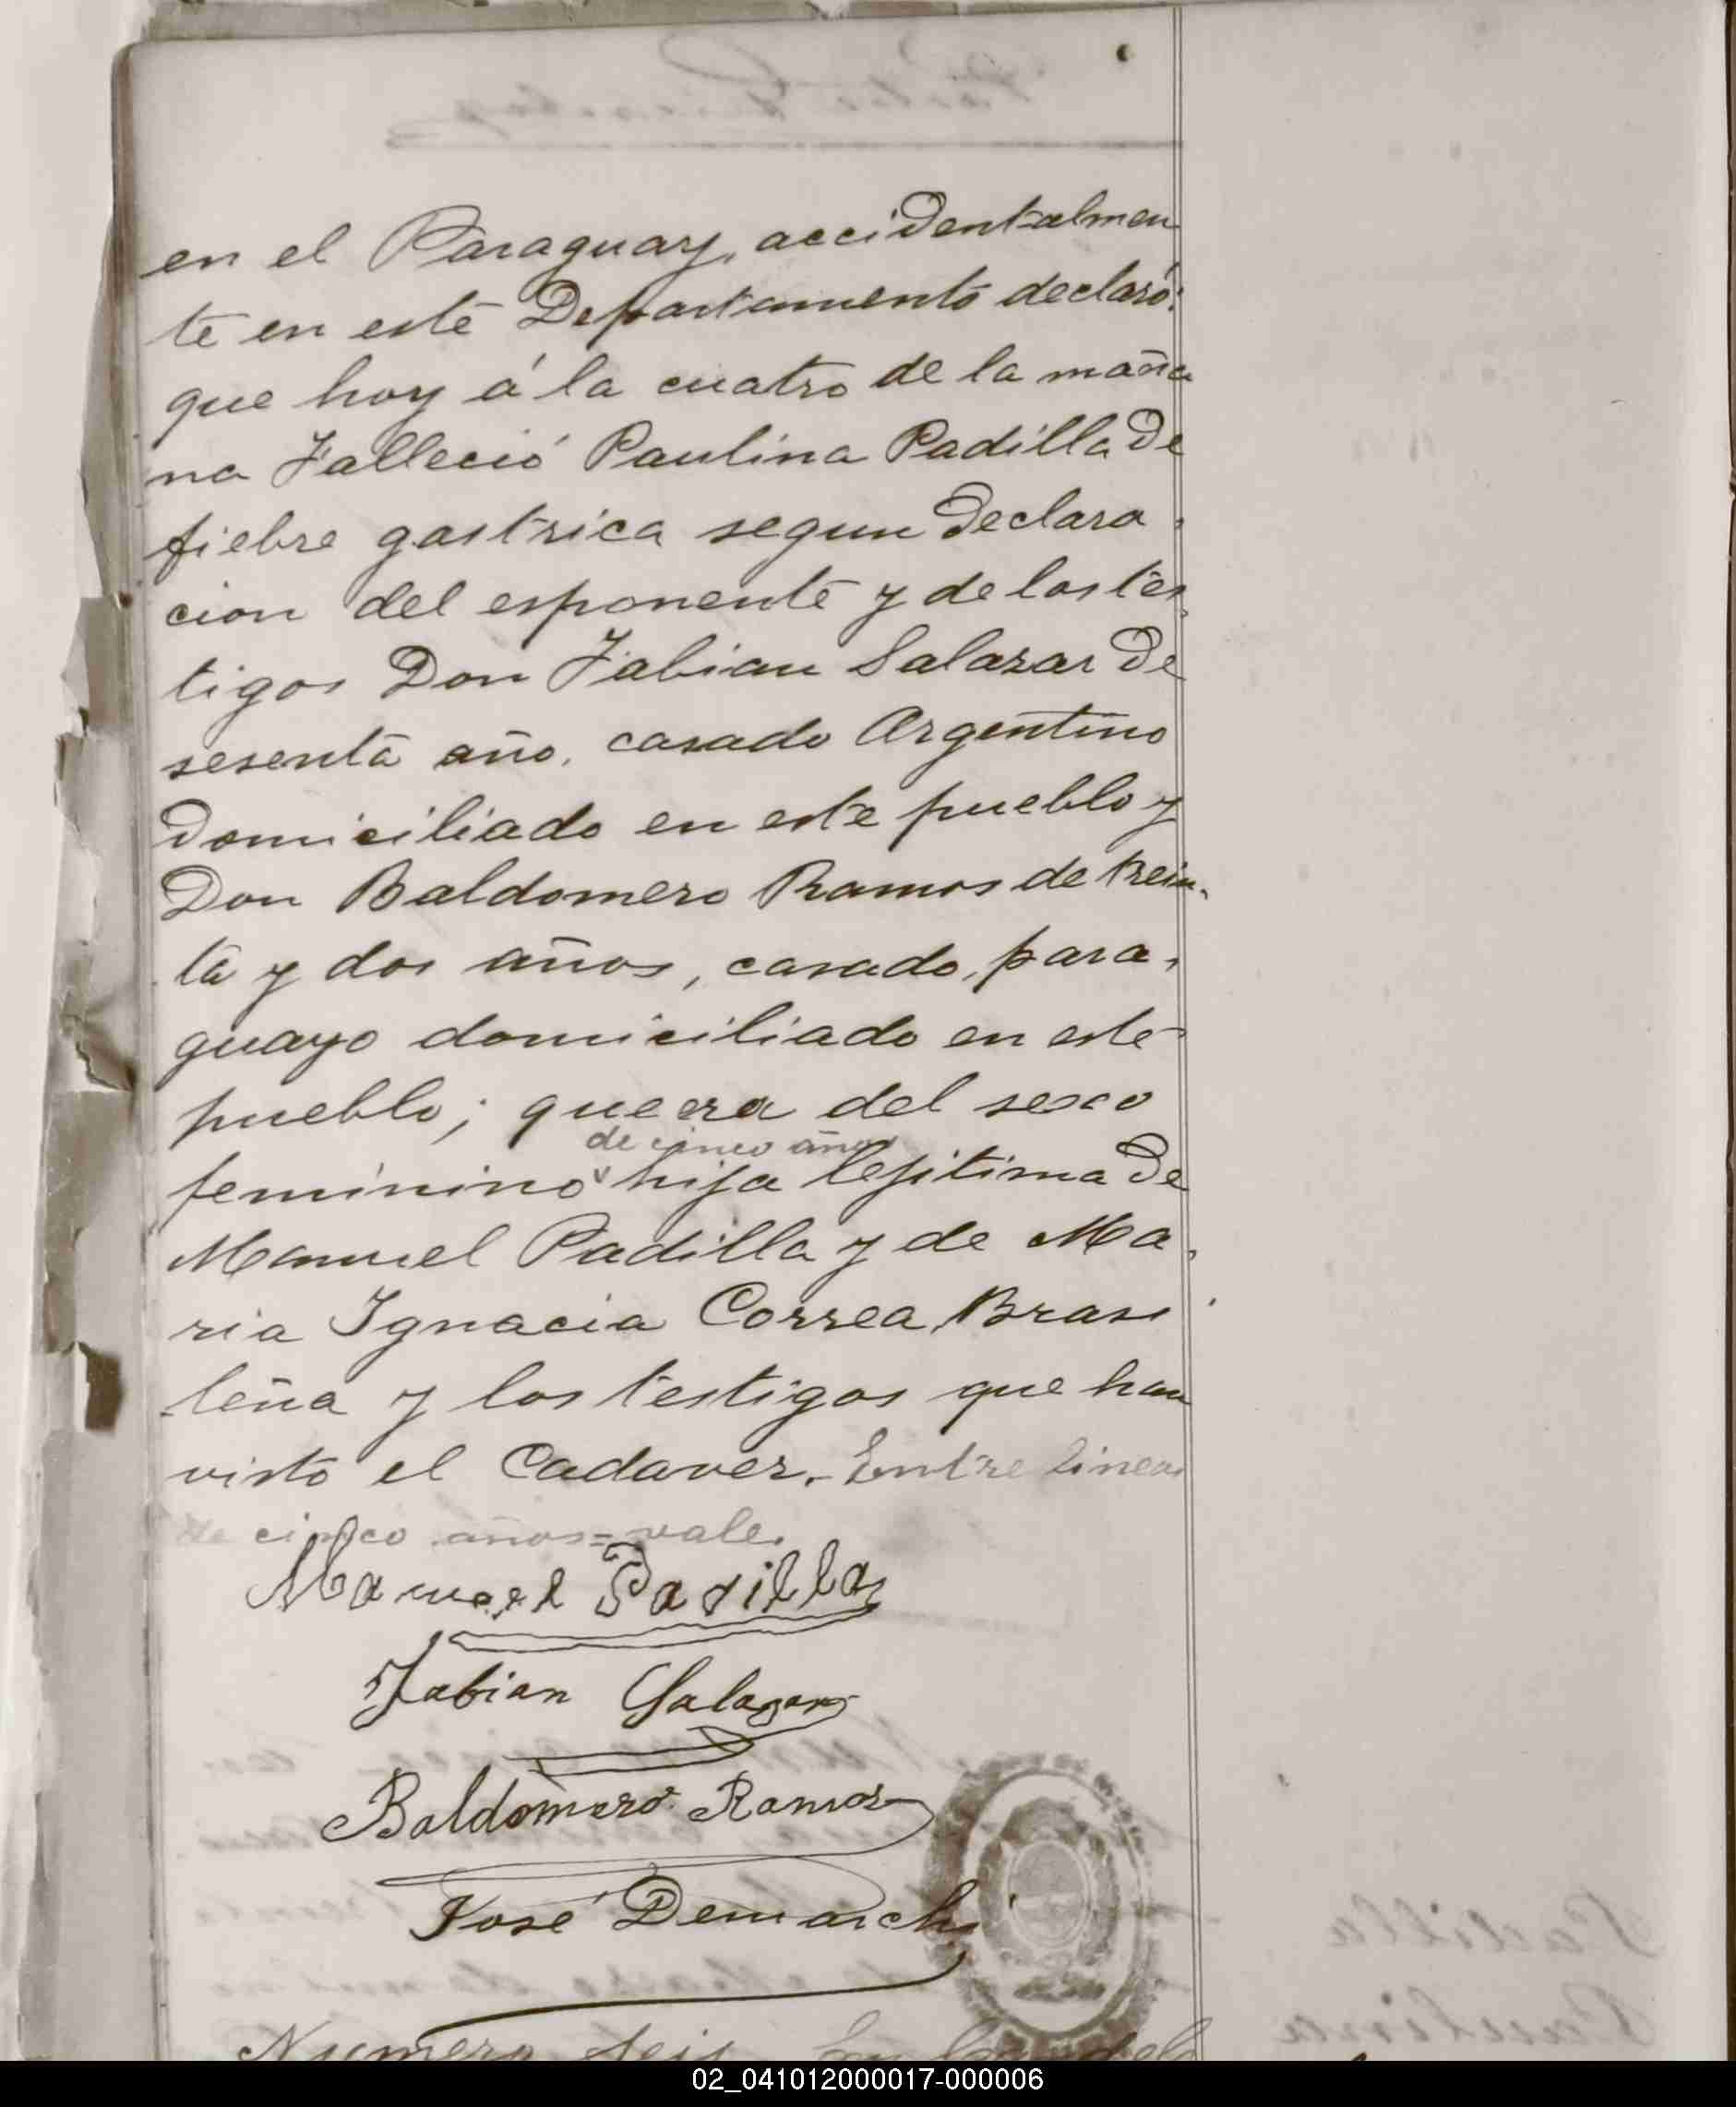 en el Paraguay, accidentalmen
te en este Departamento declaró:
que hoy á la cuatro de la maña
na Falleció Paulina Padilla de
fiebre gastrica segun declara
cion del esponente y de los tes
tigos Don Fabian Salazar de
sesenta año, casado Argentino
domiciliado en este pueblo y
Don Baldomero Ramos de trein-
ta y dos años, casado, para-
guayo domiciliado en este
pueblo; que era del sexo
de cinco años
feminino hija lejitima de
Manuel Padilla y de Ma-
ria Ignacia Correa, Brasi
leña y los testigos que han
visto el Cadaver. Entre lineas
de cinco años = vale.
Manuel Padilla
Fabian Salazar
Baldomero Ramos
José Demarchi
Numero Seis
02_041012000017-000006